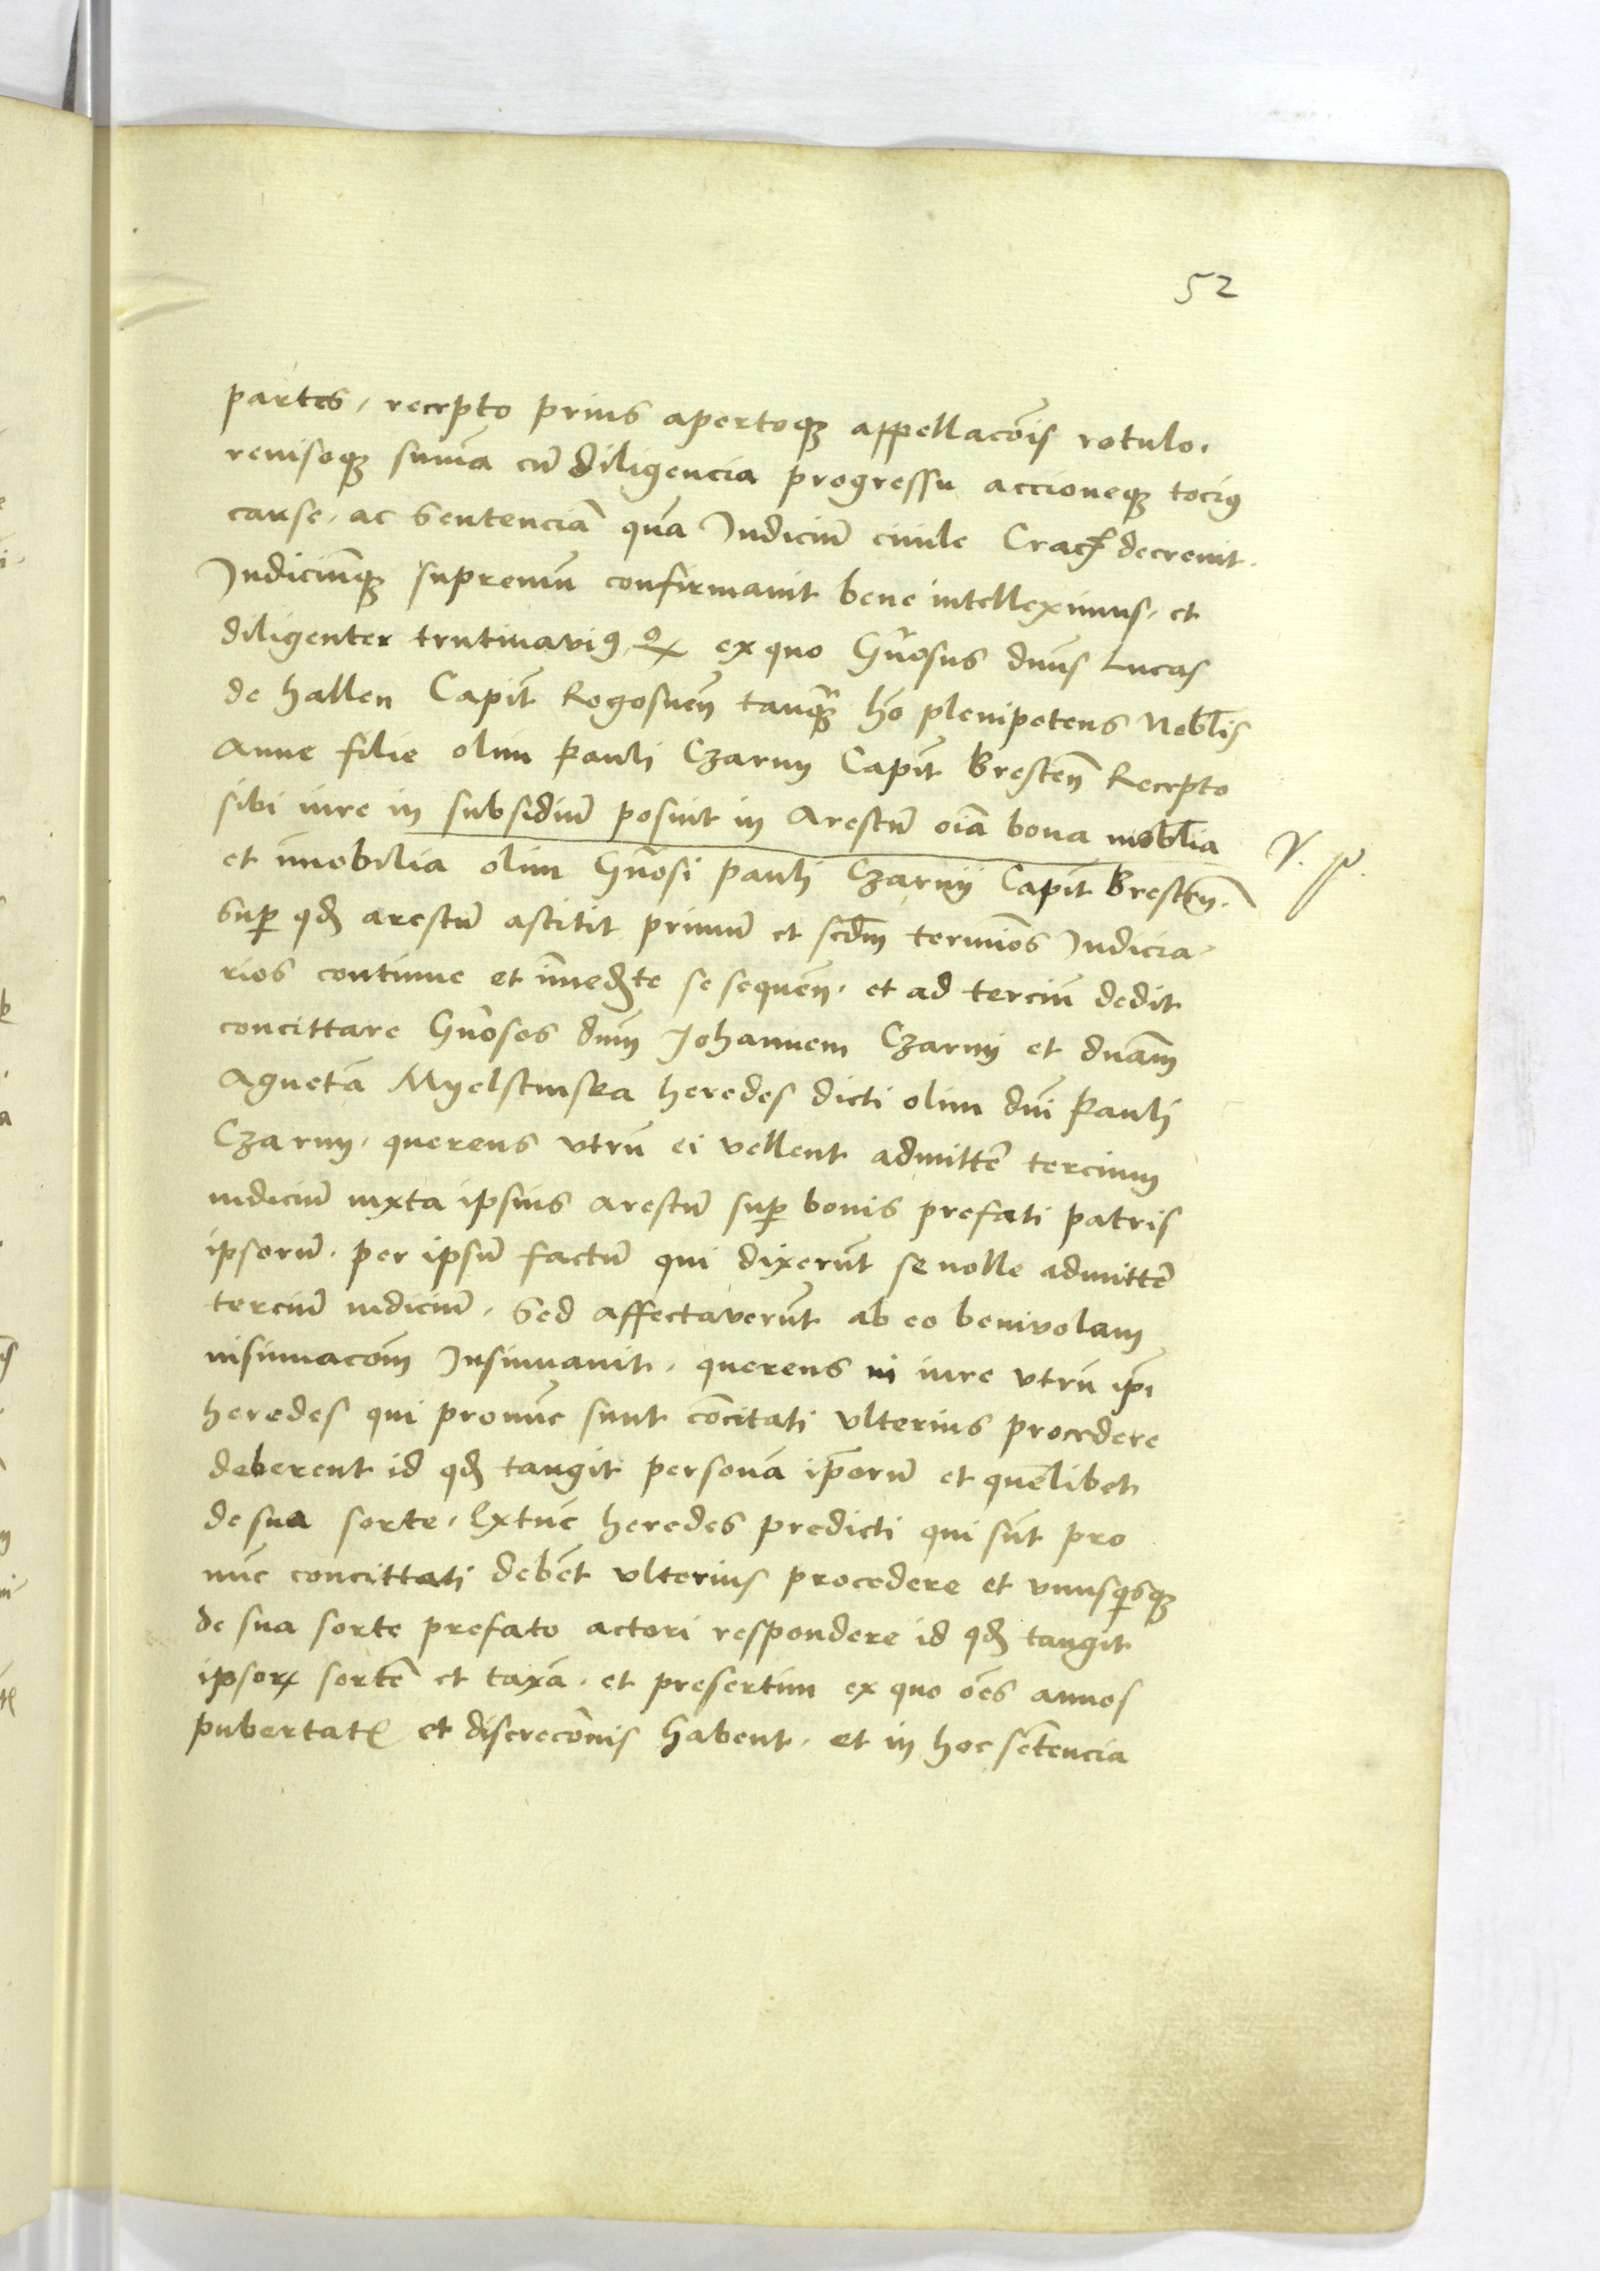 52
partes, recepto prius apertoqꝫ appellacōis rotulo.
reuisoqꝫ suma͞ cu͞ diligencia progressu accioneqꝫ tociꝰ
cause, ac Sentencia͞ qua͞ Iudiciu͞ ciuile Crac͞ decreuit.
Iudiciu͞qꝫ supremu͞ confirmauit bene intelleximus, et
diligenter trutinauiꝰ, ex quo Gn͞osus dn͞us Lucas
de hallen Capit͞ Rogosnen͞ tanqꝫ ho͞ plenipotens Nobl͞is
Anne filie olim Pauli Czarny Capit͞ Bresten͞ Recepto
sibi iure in subsidiu͞ posuit in Arestu͞ oi͞a bona mobl͞ia
et i͞mobilia olim Gn͞osi Pauli Czarny Capit͞ Bresten͞.
Suꝑ qđ arestu͞ astitit primu͞ et scd͞m termi͞os Iudicia-
rios continue et i͞mediate se sequen͞. et ad terciu͞ dedit
concittare Gn͞osos dn͞m Johannem Czarny et dn͞am
Agneta͞ Myelstinska heredes dicti olim dn͞i Pauli
Czarny. querens vtru͞ ei vellent admitte͞ tercium
iudiciu͞ iuxta ipsius arestu͞ suꝑ bonis prefati patris
ipsoru͞. per ipsu͞ factu͞ qui dixeru͞t se nolle admitte͞
terciu͞ iudiciu͞. Sed affectaveru͞t ab eo benivolam
insinuaco͞m Insinuauit. querens in iure vtru͞ ip͞i
heredes qui pronu͞c sunt co͞citati vlterius procedere
deberent id qđ tangit persona͞ ip͞oru͞ et que͞libet
de sua sorte. Extu͞c heredes predicti qui su͞t pro
nu͞c concittati debe͞t vlterius procedere et vnusqi͞sqꝫ
de sua sorte prefato actori respondere id qđ tangit
ipsoꝝ sorte͞ et taxa͞. et presertim ex quo o͞es annos
pubertatꝭ et discreco͞nis habent. et in hoc se͞tencia